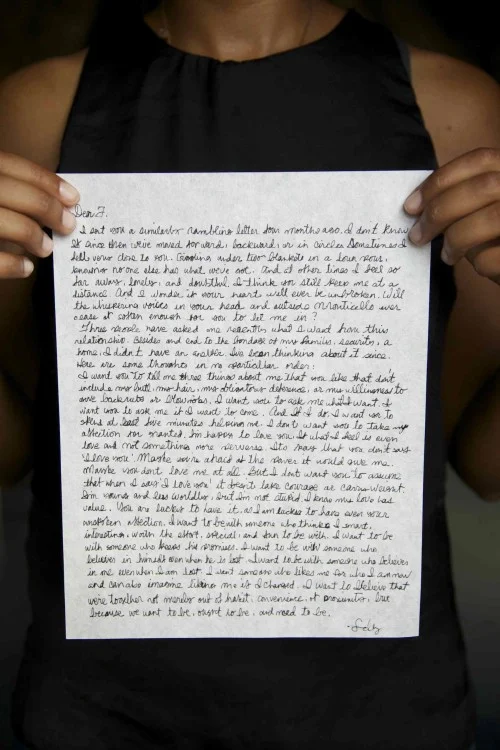 Dear J.
I sent you a similarly rambling letter four months ago. I don't know
if since then we've moved forward, backward, or in circles. Sometimes I
feel very close to you. Giggling under two blankets in a
knowing no one else has what we've got. And at other times I feel so
far away, lonely, and doubtful. I think you still keep me at a
distance. And I wonder if your heart will ever be unbroken. Will
the whispering voices in your head and outside Monticello ever
cease or soften enough for you to let me in?
Three people have asked me recently what I want from this
relationship. Besides an end to the bondage of my family, security, a
home, I didn't have an answer. I've been thinking about it since.
Here are some thoughts in no particular order:
I want you to tell me three things about me that you like that don't
include my butt, my hair, my obligatory deference, or my willingness to
give backrubs or blowjobs. I want you to ask me what I want. I
want you to ask me if I want to come. And if I do, I want you to
at least five minutes helping me. I don't want you to take my
affection for granted. I'm happy to love you if what I feel is even
love and not something more perverse. It's okay that you don't say
'I love you'. Maybe you're afraid of the power it would give me.
Maybe you don't love me at all. But I don't want you to assume
that when I say 'I love you' it doesn't take courage or carry weight.
I'm young and less worldly, but I'm not stupid. I know my love has
value. You are lucky to have it, as I am lucky to have even your
unspoken affection. I want to be with someone who thinks I'm smart,
interesting, worth the effort, special, and fun to be with. I want to be
with someone who keeps his promises. I want to be with someone who
believes in himself even when he is lost. I want to be with someone who believes
in me even when I am lost. I want someone who likes me for who I am now
and can also imagine liking me if I changed. I want to believe that
we're together not merely out of habit, convenience, or proximity, but
because we want to be, ought to be, and need to be.
-Sally